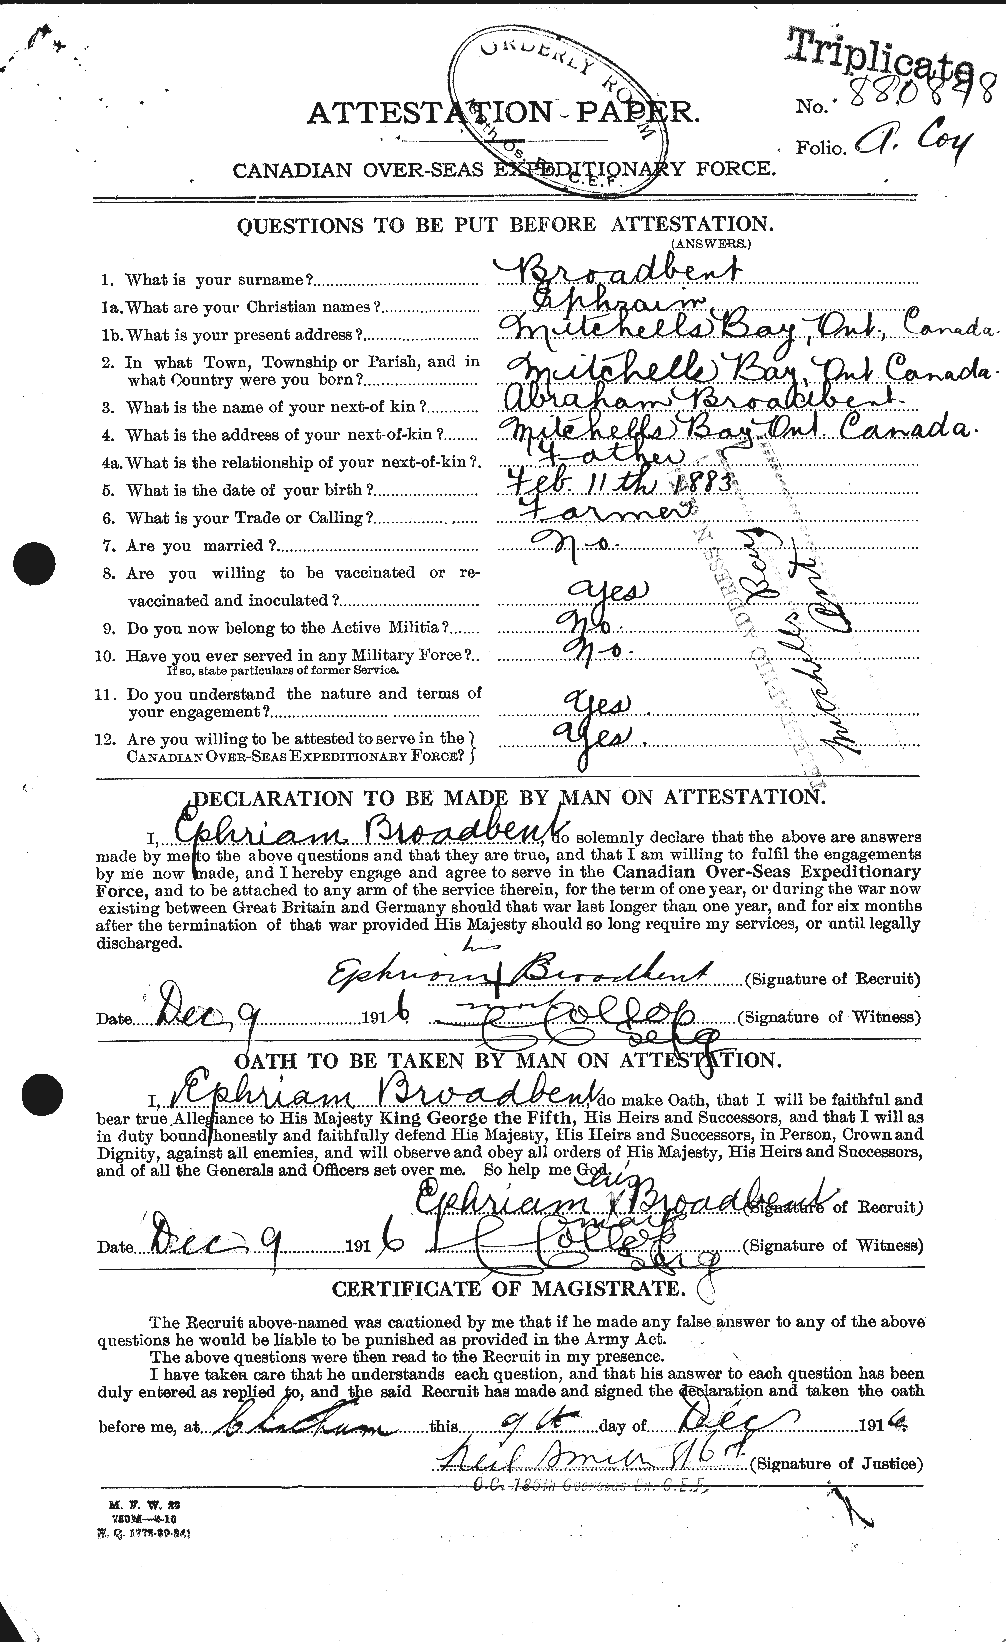 Triplicate
ORDERLY ROOM
ATTESTATION PAPER.
No. 880898
Folio. A. Coy
CANADIAN OVER-SEAS EXPEDITIONARY FORCE.
C.E.F.
QUESTIONS TO BE PUT BEFORE ATTESTATION.
(ANSWERS.)
1. What is your surname? Broadbent
1a. What are your Christian names? Ephraim
1b. What is your present address? Mitchells Bay, Ont., Canada.
2. In what Town, Township or Parish, and in
what Country were you born? Mitchells Bay, Ont Canada.
3. What is the name of your next-of kin? Abraham Broadbent.
4. What is the address of your next-of-kin? Mitchells Bay Ont Canada.
4a. What is the relationship of your next-of-kin? Father
5. What is the date of your birth? Feb. 11th 1883
6. What is your Trade or Calling? Farmer
7. Are you married? No.
8. Are you willing to be vaccinated or re-
vaccinated and inoculated? Yes
9. Do you now belong to the Active Militia? No.
10. Have you ever served in any Military Force? No.
If so, state particulars of former Service.
11. Do you understand the nature and terms of
your engagement? Yes.
12. Are you willing to be attested to serve in the
CANADIAN OVER-SEAS EXPEDITIONARY FORCE? Yes.
ADDRESS IN
Mitchells Bay
Ont
DECLARATION TO BE MADE BY MAN ON ATTESTATION.
I, Ephriam Broadbent, do solemnly declare that the above are answers
made by me to the above questions and that they are true, and that I am willing to fulfil the engagements
by me now made, and I hereby engage and agree to serve in the Canadian Over-Seas Expeditionary
Force, and to be attached to any arm of the service therein, for the term of one year, or during the war now
existing between Great Britain and Germany should that war last longer than one year, and for six months
after the termination of that war provided His Majesty should so long require my services, or until legally
discharged.
his
Ephriam X Broadbent (Signature of Recruit)
mark
Date Dec 9 1916 C Collop (Signature of Witness)
Serg
OATH TO BE TAKEN BY MAN ON ATTESTATION.
I, Ephriam Broadbent, do make Oath, that I will be faithful and
bear true Allegiance to His Majesty King George the Fifth, His Heirs and Successors, and that I will as
in duty bound honestly and faithfully defend His Majesty, His Heirs and Successors, in Person, Crown and
Dignity, against all enemies, and will observe and obey all orders of His Majesty, His Heirs and Successors,
and of all the Generals and Officers set over me. So help me God.
his
Ephriam X Broadbent (Signature of Recruit)
mark
Date Dec 9 1916 C Collop (Signature of Witness)
Serg
CERTIFICATE OF MAGISTRATE.
The Recruit above-named was cautioned by me that if he made any false answer to any of the above
questions he would be liable to be punished as provided in the Army Act.
The above questions were then read to the Recruit in my presence.
I have taken care that he understands each question, and that his answer to each question has been
duly entered as replied to, and the said Recruit has made and signed the declaration and taken the oath
before me, at Chatham this 9th day of Dec 1916.
Neil Smith (Signature of Justice)
O.C. 186th Overseas Bn. C.E.F.
M. F. W. 23